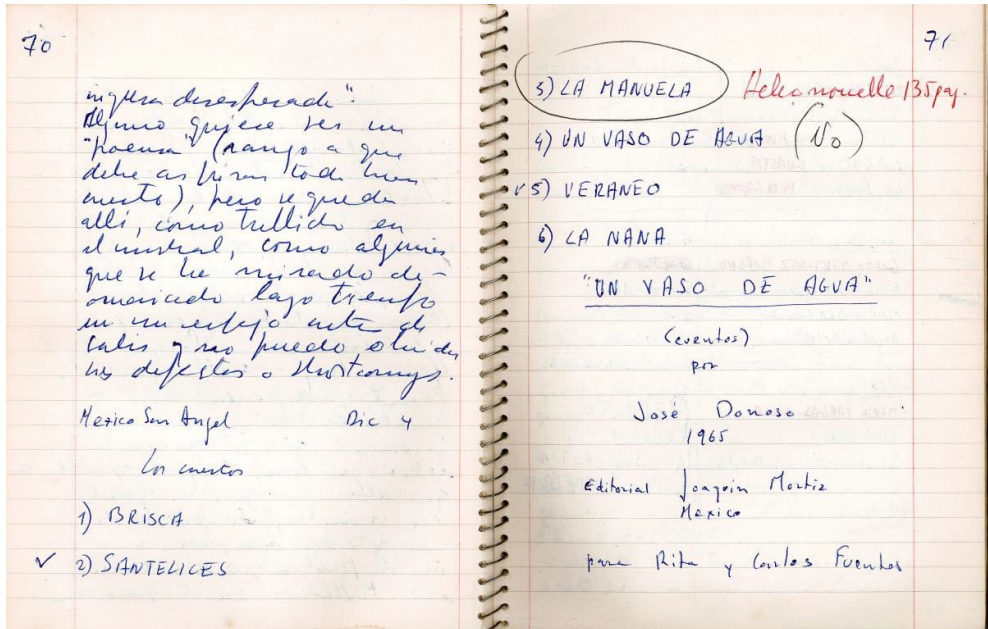 70
ingresa desesperada".
Alguno quiere ser un
"poema" (rango a que
debe aspirar todo buen
cuento), pero se queda
allí, como tullido en
el umbral, como alguien
que se ha mirado de-
masiado largo tiempo
en un espejo antes de
salir y no puede olvidar
sus defectos o shortcomings.
Mexico San Angel Dic 4
Los cuentos
1) BRISCA
✓ 2) SANTELICES
71
3) LA MANUELA Hecho nouvelle 135 pag.
4) UN VASO DE AGUA (No)
✓ 5) VERANEO
6) LA NANA
"UN VASO DE AGUA"
(cuentos)
por
José Donoso
1965
Editorial Joaquín Mortiz
Mexico
para Rita y Carlos Fuentes